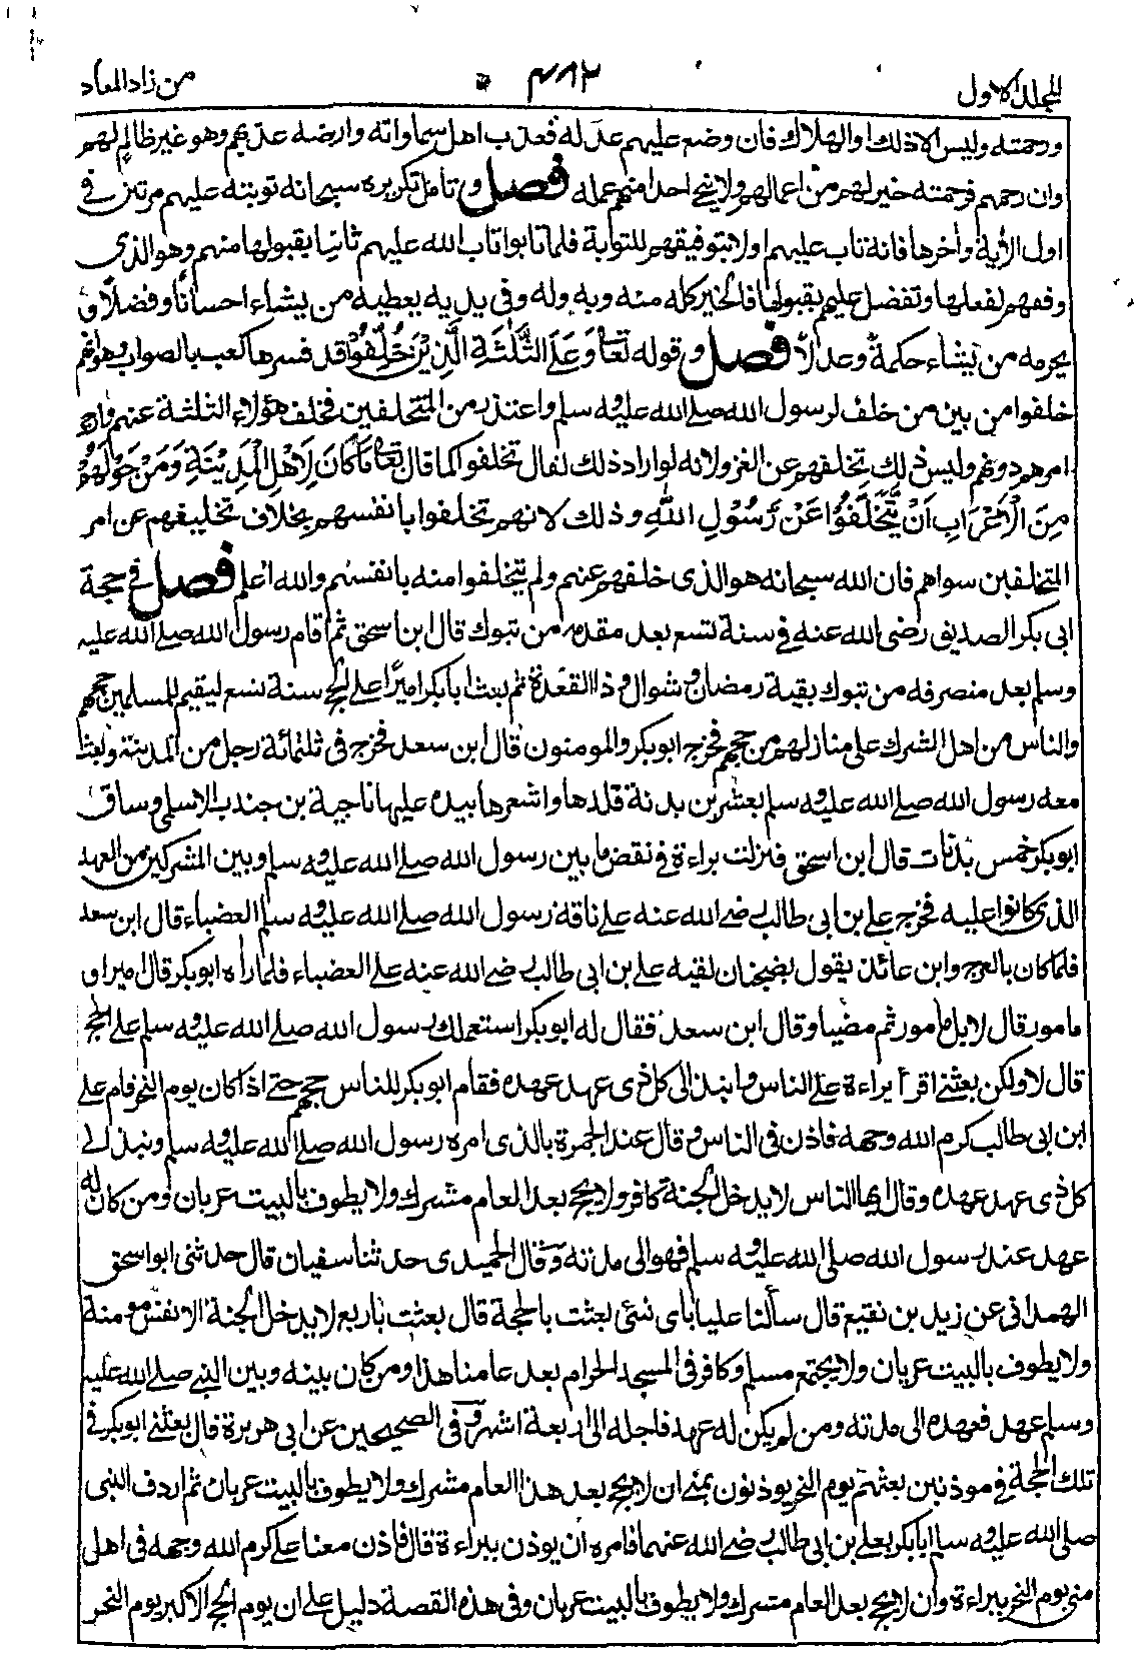 المجلد الاول ٤٨٢ من زاد المعاد
ورحمته وليس الا ذلك او الهلاك فان وضع عليهم عدله فعذب اهل سماواته وارضه عذبهم وهو غير ظالم لهم
وان رحمهم فرحمته خير لهم من اعمالهم ولا ينجي احدا منهم عمله فصل وتامل تكريره سبحانه توبته عليهم مرتين في
اول الآية وآخرها فانه تاب عليهم اولا بتوفيقهم للتوبة فلما تابوا تاب الله عليهم ثانيا بقبولها منهم وهو الذي
وفقهم لفعلها وتفضل عليهم بقبولها فالخير كله منه وبه وله وفي يديه يعطيه من يشاء احسانا وفضلا و
يحرمه من يشاء حكمة وعدلا فصل وقوله تعالى وَعَلَى الثَّلٰثَةِ الَّذِيْنَ خُلِّفُوْا قد فسرها كعب بالصواب وهو انهم
خلفوا من بين من خلف لرسول الله صلى الله عليه وسلم واعتذر من المتخلفين فخلف هؤلاء الثلثة عنهم وارجى
امرهم دونهم وليس ذلك تخلفهم عن الغزو لانه لو اراد ذلك لقال تخلفوا كما قال تعالى مَا كَانَ لِاَهْلِ الْمَدِيْنَةِ وَمَنْ حَوْلَهُمْ
مِنَ الْاَعْرَابِ اَنْ يَّتَخَلَّفُوْا عَنْ رَسُوْلِ اللهِ وذلك لانهم تخلفوا بانفسهم بخلاف تخليفهم عن امر
المتخلفين سواهم فان الله سبحانه هو الذي خلفهم عنهم ولم يتخلفوا منه بانفسهم والله اعلم فصل في حجة
ابي بكر الصديق رضى الله عنه في سنة تسع بعد مقدمه من تبوك قال ابن اسحق ثم اقام رسول الله صلى الله عليه
وسلم بعد منصرفه من تبوك بقية رمضان وشوال وذا القعدة ثم بعث ابا بكر اميرا على الحج سنة تسع ليقيم للمسلمين حجهم
والناس من اهل الشرك على منازلهم من حجهم فخرج ابو بكر والمومنون قال ابن سعد فخرج في ثلثمائة رجل من المدينة وبعث
معه رسول الله صلى الله عليه وسلم بعشرين بدنة قلدها واشعرها بيده عليها ناجية بن جندب الاسلمي وساق
ابو بكر خمس بدنات قال ابن اسحق فنزلت براءة في نقض ما بين رسول الله صلى الله عليه وسلم وبين المشركين من العهد
الذي كانوا عليه فخرج علي بن ابي طالب رضي الله عنه على ناقة رسول الله صلى الله عليه وسلم العضباء قال ابن سعد
فلما كان بالعرج وابن عائذ يقول بضجنان لقيه علي بن ابي طالب رضي الله عنه على العضباء فلما رآه ابو بكر قال امير او
مامور قال لا بل مامور ثم مضيا وقال ابن سعد فقال له ابو بكر استعملك رسول الله صلى الله عليه وسلم على الحج
قال لا ولكن بعثني اقرأ براءة على الناس وانبذ الى كل ذي عهد عهده فقام ابو بكر للناس حجهم حتى اذا كان يوم النحر قام علي
ابن ابي طالب كرم الله وجهه فاذن في الناس وقال عند الجمرة بالذي امره رسول الله صلى الله عليه وسلم ونبذ الى
كل ذي عهد عهده وقال ايها الناس لا يدخل الجنة كافر ولا يحج بعد العام مشرك ولا يطوف بالبيت عريان ومن كان له
عهد عند رسول الله صلى الله عليه وسلم فهو الى مدته وقال الحميدي حدثنا سفيان قال حدثني ابو اسحق
الهمداني عن زيد بن نقيع قال سألنا عليا باي شئ بعثت بالحجة قال بعثت باربع لا يدخل الجنة الا نفس مومنة
ولا يطوف بالبيت عريان ولا يجتمع مسلم وكافر في المسجد الحرام بعد عامنا هذا ومن كان بينه وبين النبي صلى الله عليه
وسلم عهد فعهده الى مدته ومن لم يكن له عهد فاجله الى اربعة اشهر وفي الصحيحين عن ابي هريرة قال بعثني ابو بكر في
تلك الحجة في موذنين بعثهم يوم النحر يوذنون بمنى ان لا يحج بعد هذا العام مشرك ولا يطوف بالبيت عريان ثم اردف النبي
صلى الله عليه وسلم ابا بكر بعلي بن ابي طالب رضي الله عنهما فامره ان يوذن ببراءة قال فاذن معنا علي كرم الله وجهه في اهل
منى يوم النحر ببراءة وان لا يحج بعد العام مشرك ولا يطوف بالبيت عريان وفي هذه القصة دليل على ان يوم الحج الاكبر يوم النحر